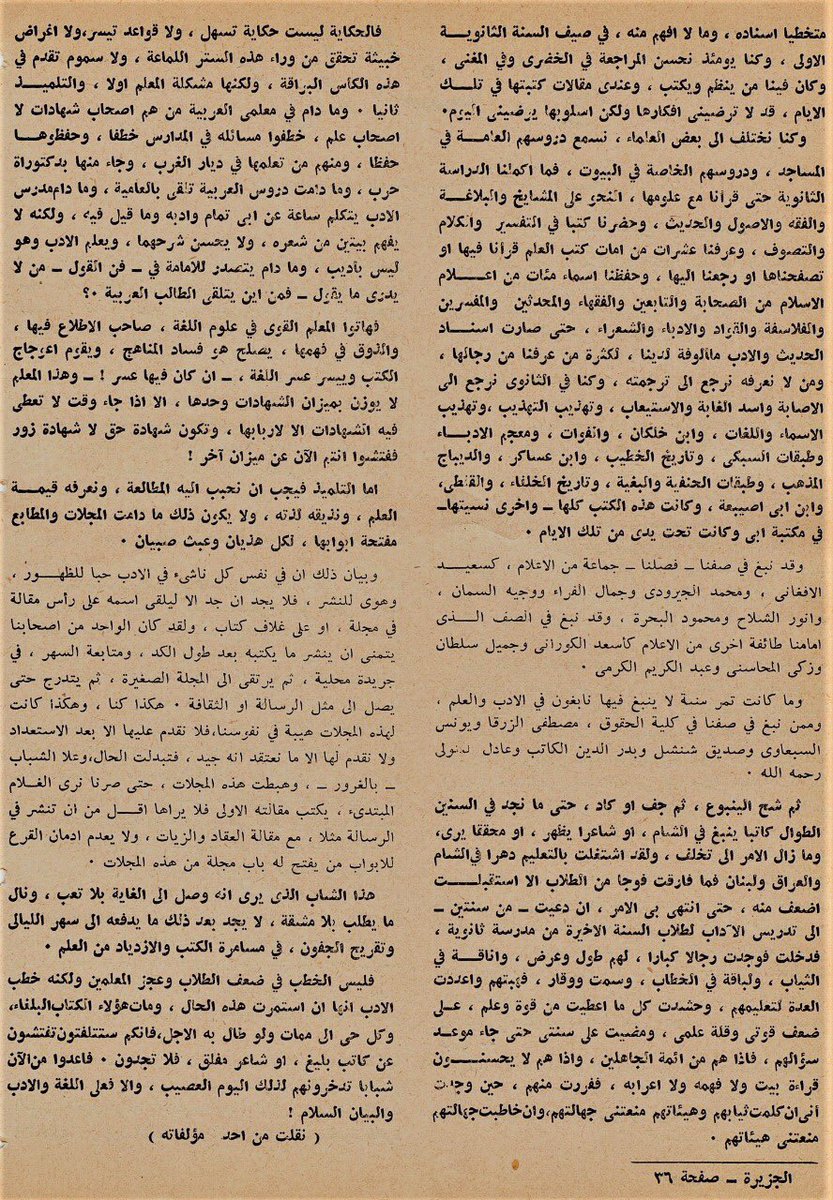 متخطيا اسناده ، وما لا افهم منه ، في صيف السنة الثانوية
الاولى ، وكنا يومئذ نحسن المراجعة في الخضرى وفي المغنى ،
وكان فينا من ينظم ويكتب ، وعندى مقالات كتبتها في تلك
الايام ، قد لا ترضينى افكارها ولكن اسلوبها يرضينى اليوم٠
وكنا نختلف الى بعض العلماء ، نسمع دروسهم العامة في
المساجد ، ودروسهم الخاصة في البيوت ، فما اكملنا الدراسة
الثانوية حتى قرأنا مع علومها ، النحو على المشايخ والبلاغة
والفقه والاصول والحديث ، وحضرنا كتبا في التفسير والكلام
والتصوف ، وعرفنا عشرات من امات كتب العلم قرأنا فيها او
تصفحناها او رجعنا اليها ، وحفظنا اسماء مئات من اعلام
الاسلام من الصحابة والتابعين والفقهاء والمحدثين والمفسرين
والفلاسفة والقواد والادباء والشعراء ، حتى صارت اسناد
الحديث والادب مألوفة لدينا ، لكثرة من عرفنا من رجالها ،
ومن لا نعرفه نرجع الى ترجمته ، وكنا في الثانوى نرجع الى
الاصابة واسد الغابة والاستيعاب ، وتهذيب التهذيب ،وتهذيب
الاسماء واللغات ، وابن خلكان ، والفوات ، ومعجم الادباء
وطبقات السبكى ، وتاريخ الخطيب ، وابن عساكر ، والديباج
المذهب ، وطبقات الحنفية والبغية ، وتاريخ الخلفاء ، والقفطى،
وابن ابى اصيبعة ، وكانت هذه الكتب كلها ــ واخرى نسيتهاــ
في مكتبة ابى وكانت تحت يدى من تلك الايام ٠
وقد نبغ في صفنا ــ فصلنا ــ جماعة من الاعلام ، كسعيد
الافغانى ، ومحمد الجيرودى وجمال الفراء ووجيه السمان ،
وانور الشلاح ومحمود البحرة ، وقد نبغ في الصف الذى
امامنا طائفة اخرى من الاعلام كأسعد الكورانى وجميل سلطان
وزكى المحاسنى وعبد الكريم الكرمى ٠
وما كانت تمر سنة لا ينبغ فيها نابغون في الادب والعلم ،
وممن نبغ في صفنا في كلية الحقوق ، مصطفى الزرقا ويونس
السبعاوى وصديق شنشل وبدر الدين الكاتب وعادل
رحمه الله ٠
ثم شح الينبوع ، ثم جف او كاد ، حتى ما نجد في السنين
الطوال كاتبا ينبغ في الشام ، او شاعرا يظهر ، او محققا يرى،
وما زال الامر الى تخلف ، ولقد اشتغلت بالتعليم دهرا في الشام
والعراق ولبنان فما فارقت فوجا من الطلاب الا استقبلت
اضعف منه ، حتى انتهى بى الامر ، ان دعيت ــ من سنتين ــ
الى تدريس الآداب لطلاب السنة الاخيرة من مدرسة ثانوية ،
فدخلت فوجدت رجالا كبارا ، لهم طول وعرض ، واناقة في
الثياب ، ولباقة في الخطاب ، وسمت ووقار ، فهبتهم واعددت
العدة لتعليمهم ، وحشدت كل ما اعطيت من قوة وعلم ، على
ضعف قوتى وقلة علمى ، ومضيت على سنتى حتى جاء موعد
سؤالهم ، فاذا هم من ائمة الجاهلين ، واذا هم لا يحسنون
قراءة بيت ولا فهمه ولا اعرابه ، ففررت منهم ، حين وجدت
أنى ان كلمت ثيابهم وهيئاتهم منعتنى جهالتهم،وان خاطبت جهالتهم
منعتنى هيئاتهم ٠
الجزيرة ــ صفحة ٣٦
فالحكاية ليست حكاية تسهل ، ولا قواعد تيسر،ولا اغراض
خبيثة تحقق من وراء هذه الستر اللماعة ، ولا سموم تقدم في
هذه الكأس البراقة ، ولكنها مشكلة المعلم اولا ، والتلميذ
ثانيا ٠ وما دام في معلمى العربية من هم اصحاب شهادات لا
اصحاب علم ، خطفوا مسائله في المدارس خطفا ، وحفظوها
حفظا ، ومنهم من تعلمها في ديار الغرب ، وجاء منها بدكتوراة
حرب ، وما دامت دروس العربية تلقى بالعامية ، وما دام مدرس
الادب يتكلم ساعة عن ابى تمام وادبه وما قيل فيه ، ولكنه لا
يفهم بيتين من شعره ، ولا يحسن شرحهما ، ويعلم الادب وهو
ليس بأديب ، وما دام يتصدر للامامة في ــ فن القول ــ من لا
يدرى ما يقول ــ فمن اين يتلقى الطالب العربية ٠؟
فهاتوا المعلم القوى في علوم اللغة ، صاحب الاطلاع فيها ،
والذوق في فهمها ، يصلح هو فساد المناهج ، ويقوم اعوجاج
الكتب وييسر عسر اللغة ، ــ ان كان فيها عسر ! ــ وهذا المعلم
لا يوزن بميزان الشهادات وحدها ، الا اذا جاء وقت لا تعطى
فيه الشهادات الا لاربابها ، وتكون شهادة حق لا شهادة زور
ففتشوا انتم الآن عن ميزان آخر !
اما التلميذ فيجب ان نحبب اليه المطالعة ، ونعرفه قيمة
العلم ، ونذيقه لذته ، ولا يكون ذلك ما دامت المجلات والمطابع
مفتحة ابوابها ، لكل هذيان وعبث صبيان ٠
وبيان ذلك ان في نفس كل ناشىء في الادب حبا للظهور ،
وهوى للنشر ، فلا يجد ان جد الا ليلقى اسمه على رأس مقالة
في مجلة ، او على غلاف كتاب ، ولقد كان الواحد من اصحابنا
يتمنى ان ينشر ما يكتبه بعد طول الكد ، ومتابعة السهر ، في
جريدة محلية ، ثم يرتقى الى المجلة الصغيرة ، ثم يتدرج حتى
يصل الى مثل الرسالة او الثقافة ٠ هكذا كنا ، وهكذا كانت
لهذه المجلات هيبة في نفوسنا،فلا نقدم عليها الا بعد الاستعداد
ولا نقدم لها الا ما نعتقد انه جيد ، فتبدلت الحال،وعلا الشباب
ــ بالغرور ــ ، وهبطت هذه المجلات ، حتى صرنا نرى الغلام
المبتدىء ، يكتب مقالته الاولى فلا يراها اقل من ان تنشر في
الرسالة مثلا ، مع مقالة العقاد والزيات ، ولا يعدم ادمان القرع
للابواب من يفتح له باب مجلة من هذه المجلات ٠
هذا الشاب الذى يرى انه وصل الى الغاية بلا تعب ، ونال
ما يطلب بلا مشقة ، لا يجد بعد ذلك ما يدفعه الى سهر الليالى
وتقريح الجفون ، في مسامرة الكتب والازدياد من العلم ٠
فليس الخطب في ضعف الطلاب وعجز المعلمين ولكنه خطب
الادب انها ان استمرت هذه الحال ، ومات هؤلاء الكتاب البلغاء،
وكل حى الى ممات ولو طال به الاجل،فانكم ستتلفتون تفتشون
عن كاتب بليغ ، او شاعر مفلق ، فلا تجدون ٠ فاعدوا من الآن
شبابا تدخرونهم لذلك اليوم العصيب ، والا فعلى اللغة والادب
والبيان السلام !
( نقلت من احد مؤلفاته )